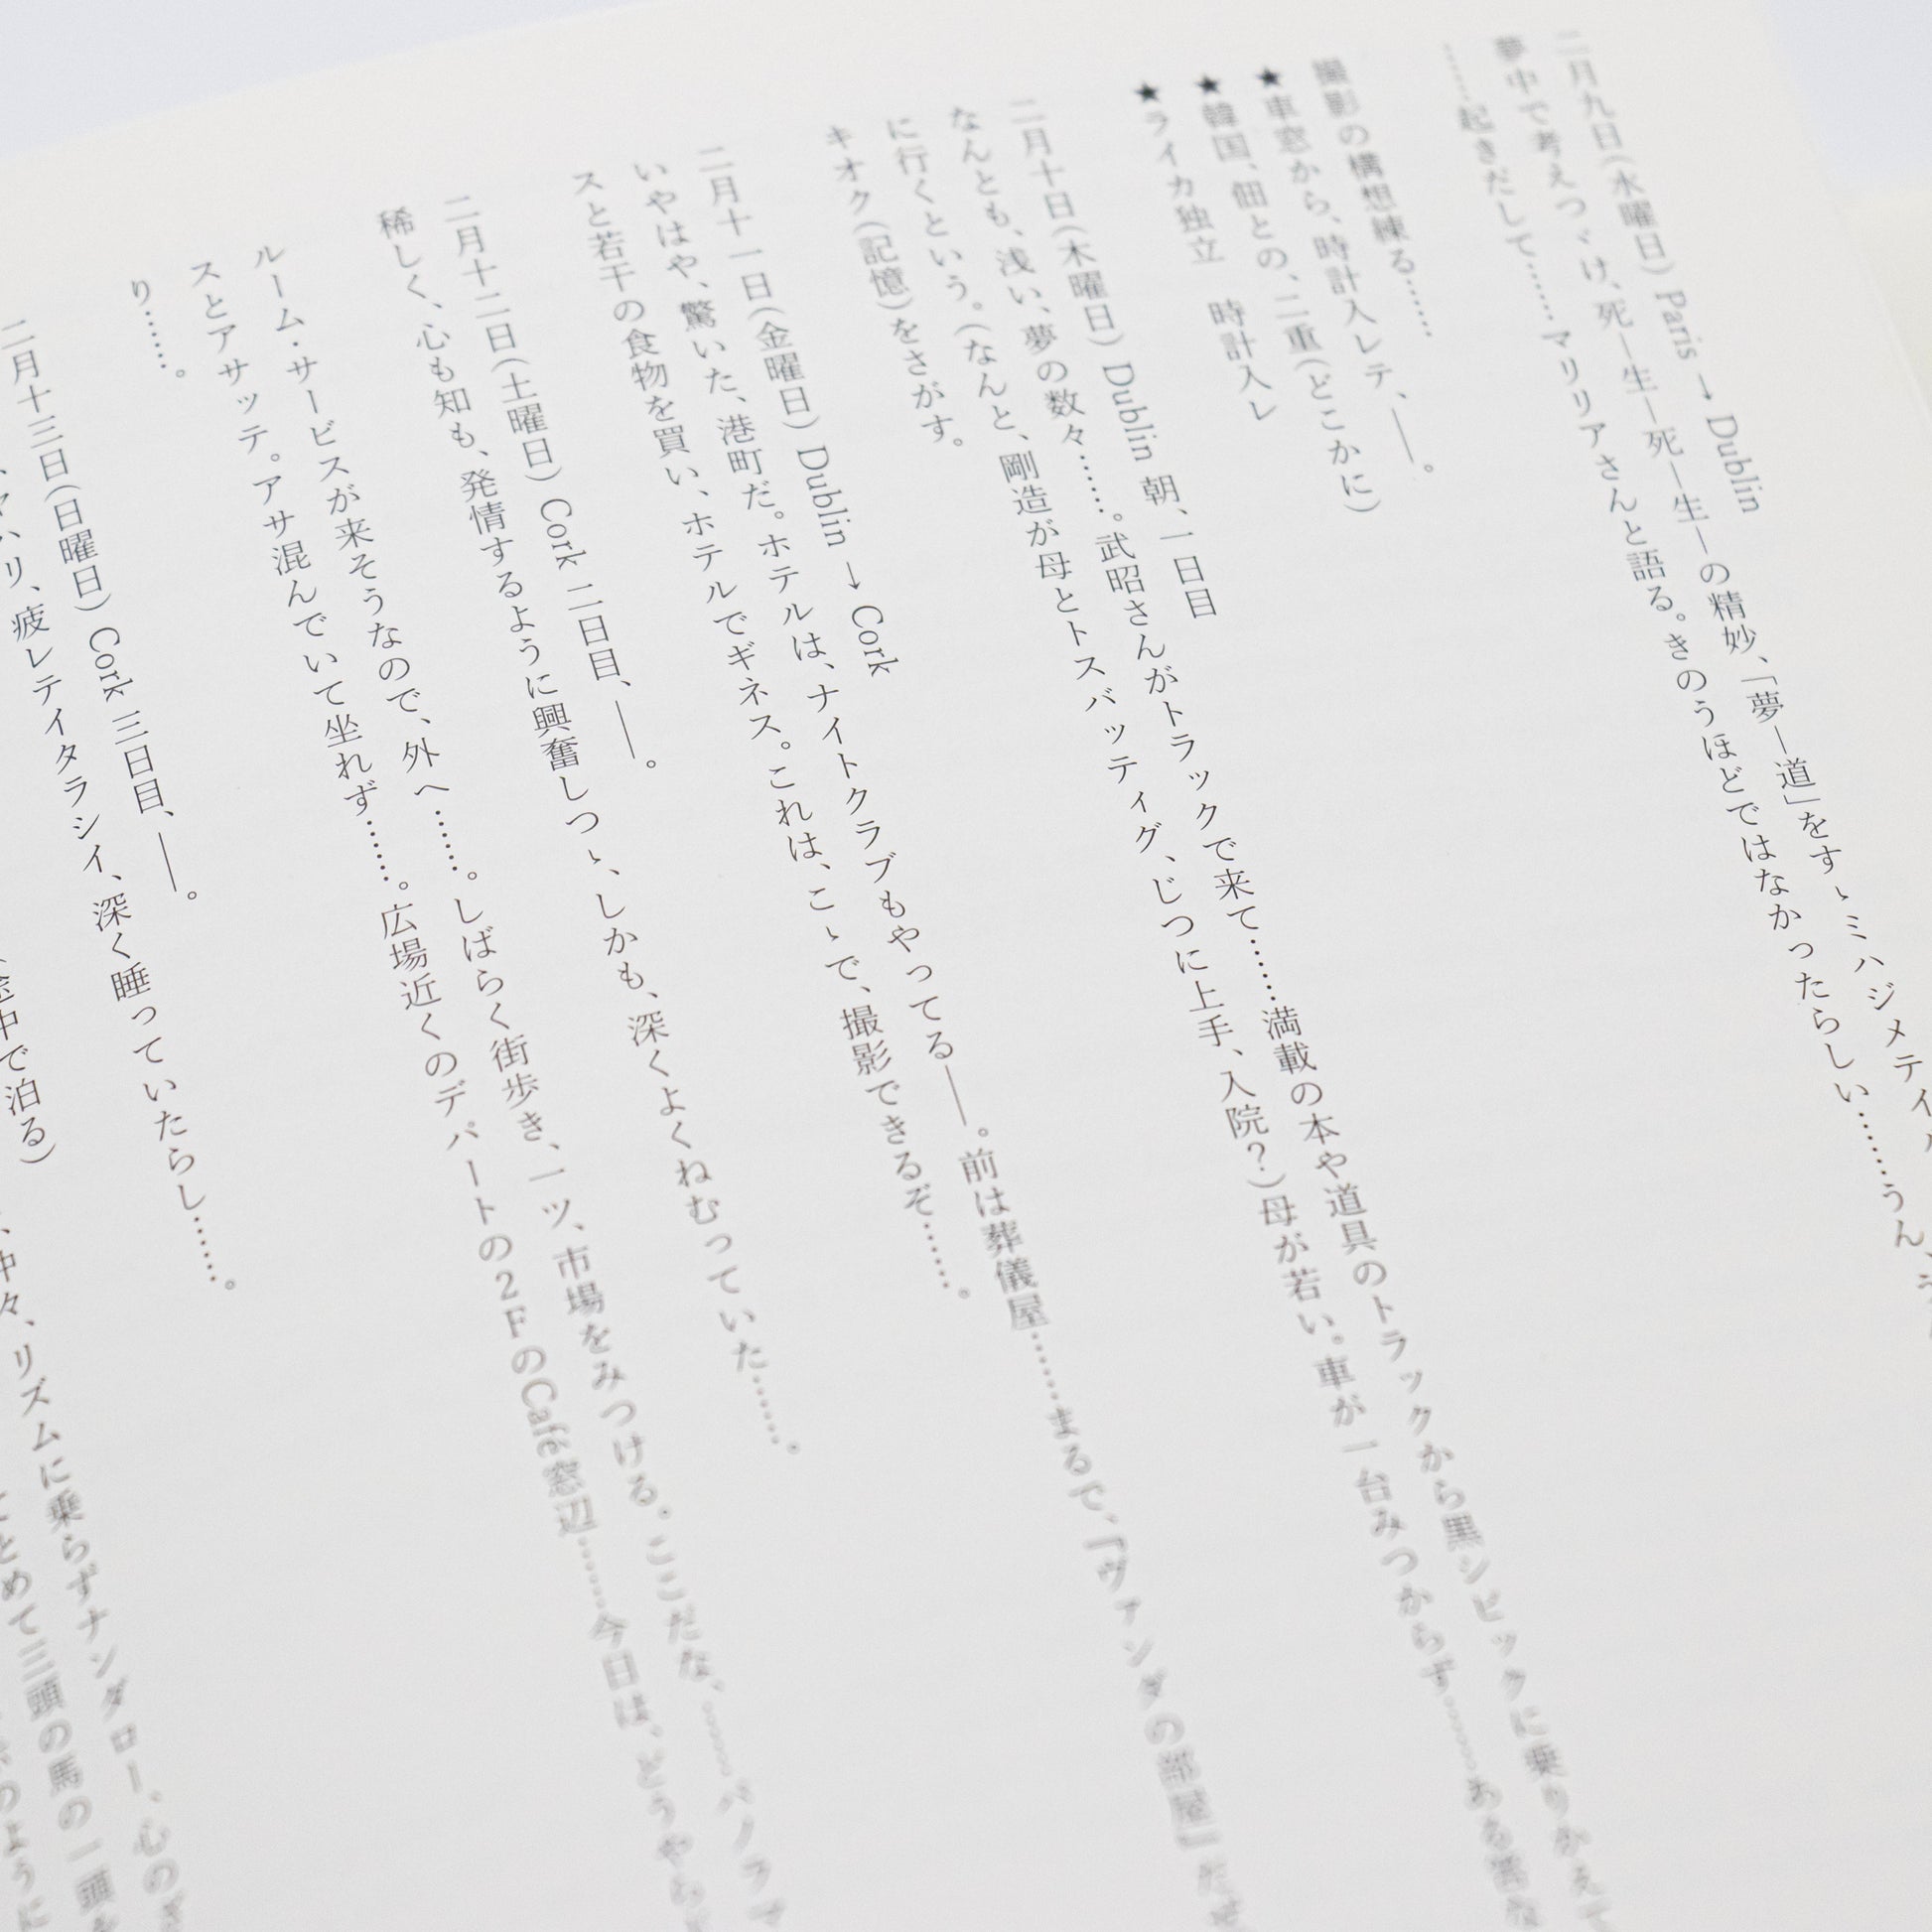 二月九日(水曜日) Paris → Dublin
夢中で考えつゞけ、死―生―死―生―の精妙、「夢―道」をすゝミハジメテイ
……起きだして……マリリアさんと語る。きのうほどではなかったらしい……うん、
撮影の構想練る……
★車窓から、時計入レテ、――。
★韓国、佃との、二重(どこかに)
★ライカ独立　時計入レ
二月十日(木曜日) Dublin 朝、一日目
なんとも、浅い、夢の数々……。武昭さんがトラックで来て……満載の本や道具のトラックから黒シビックに乗りかえて
に行くという。(なんと、剛造が母とトスバッティグ、じつに上手、入院?)母が若い。車が一台みつからず……ある
キオク(記憶)をさがす。
二月十一日(金曜日) Dublin → Cork
いやはや、驚いた、港町だ。ホテルは、ナイトクラブもやってる――。前は葬儀屋……まるで、『ヴァンダの部屋』だ
スと若干の食物を買い、ホテルでギネス。これは、こゝで、撮影できるぞ……。
二月十二日(土曜日) Cork 二日目、――。
稀しく、心も知も、発情するように興奮しつゝ、しかも、深くよくねむっていた……。
ルーム・サービスが来そうなので、外へ……。しばらく街歩き、一ツ、市場をみつける。ここだな、……パノラマ
スとアサッテ。アサ混んでいて坐れず……。広場近くのデパートの2FのCafé窓辺……今日は、どうやら
り……。
二月十三日(日曜日) Cork 三日目、――。
ヤハリ、疲レテイタラシイ、深く睡っていたらし……。
途中で泊る)
、中々、リズムに乗らずナンダロー、心の
とめて三頭の馬の一頭
のように